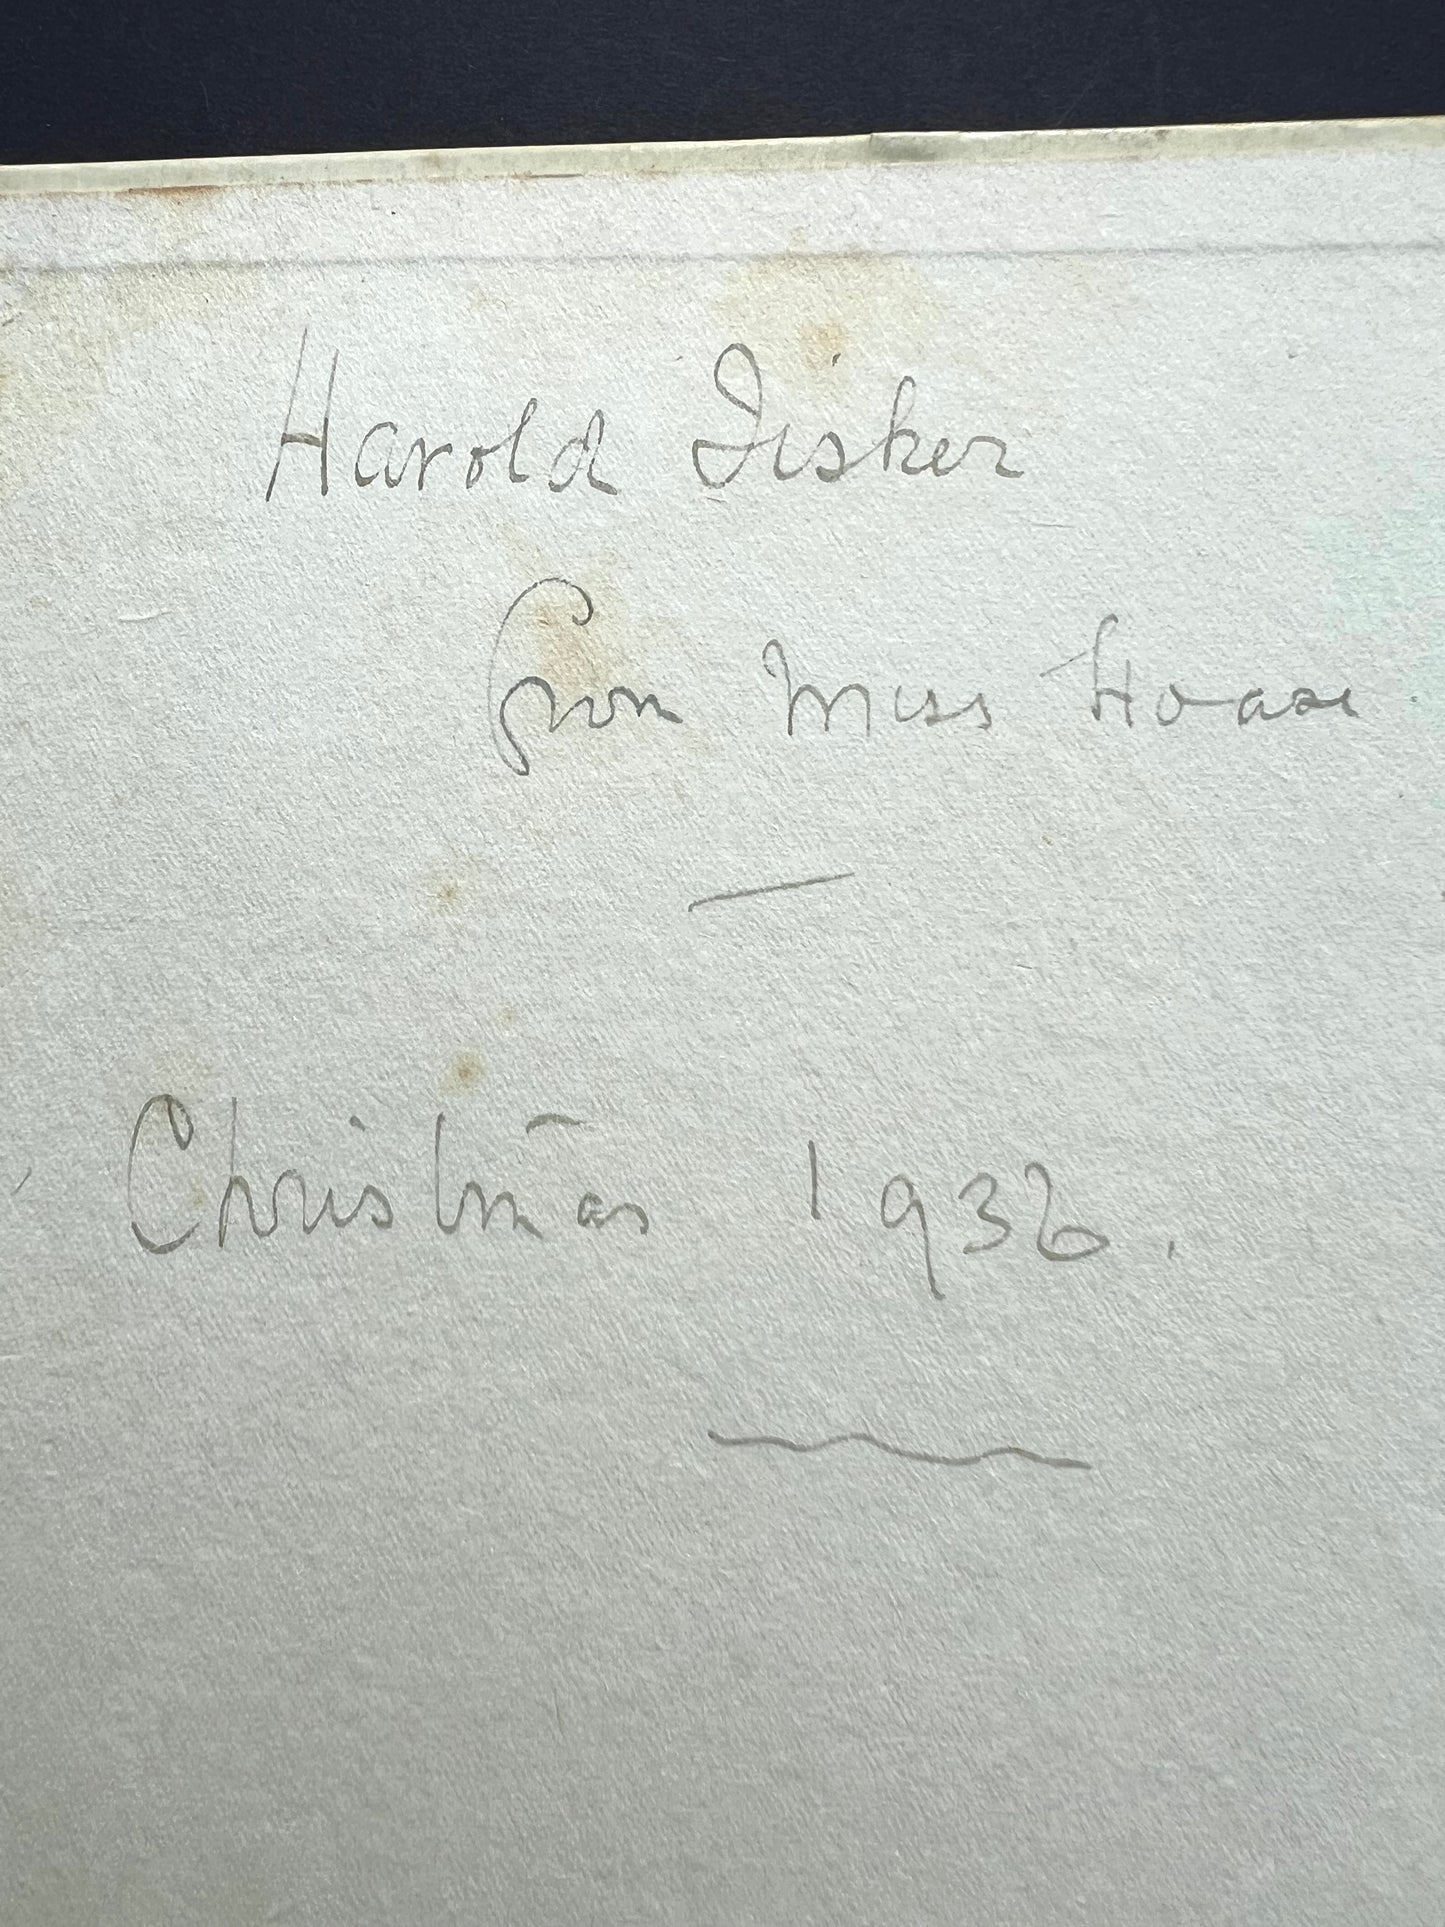 Harold Fisher
from Miss Hoare.
Christmas 1936.